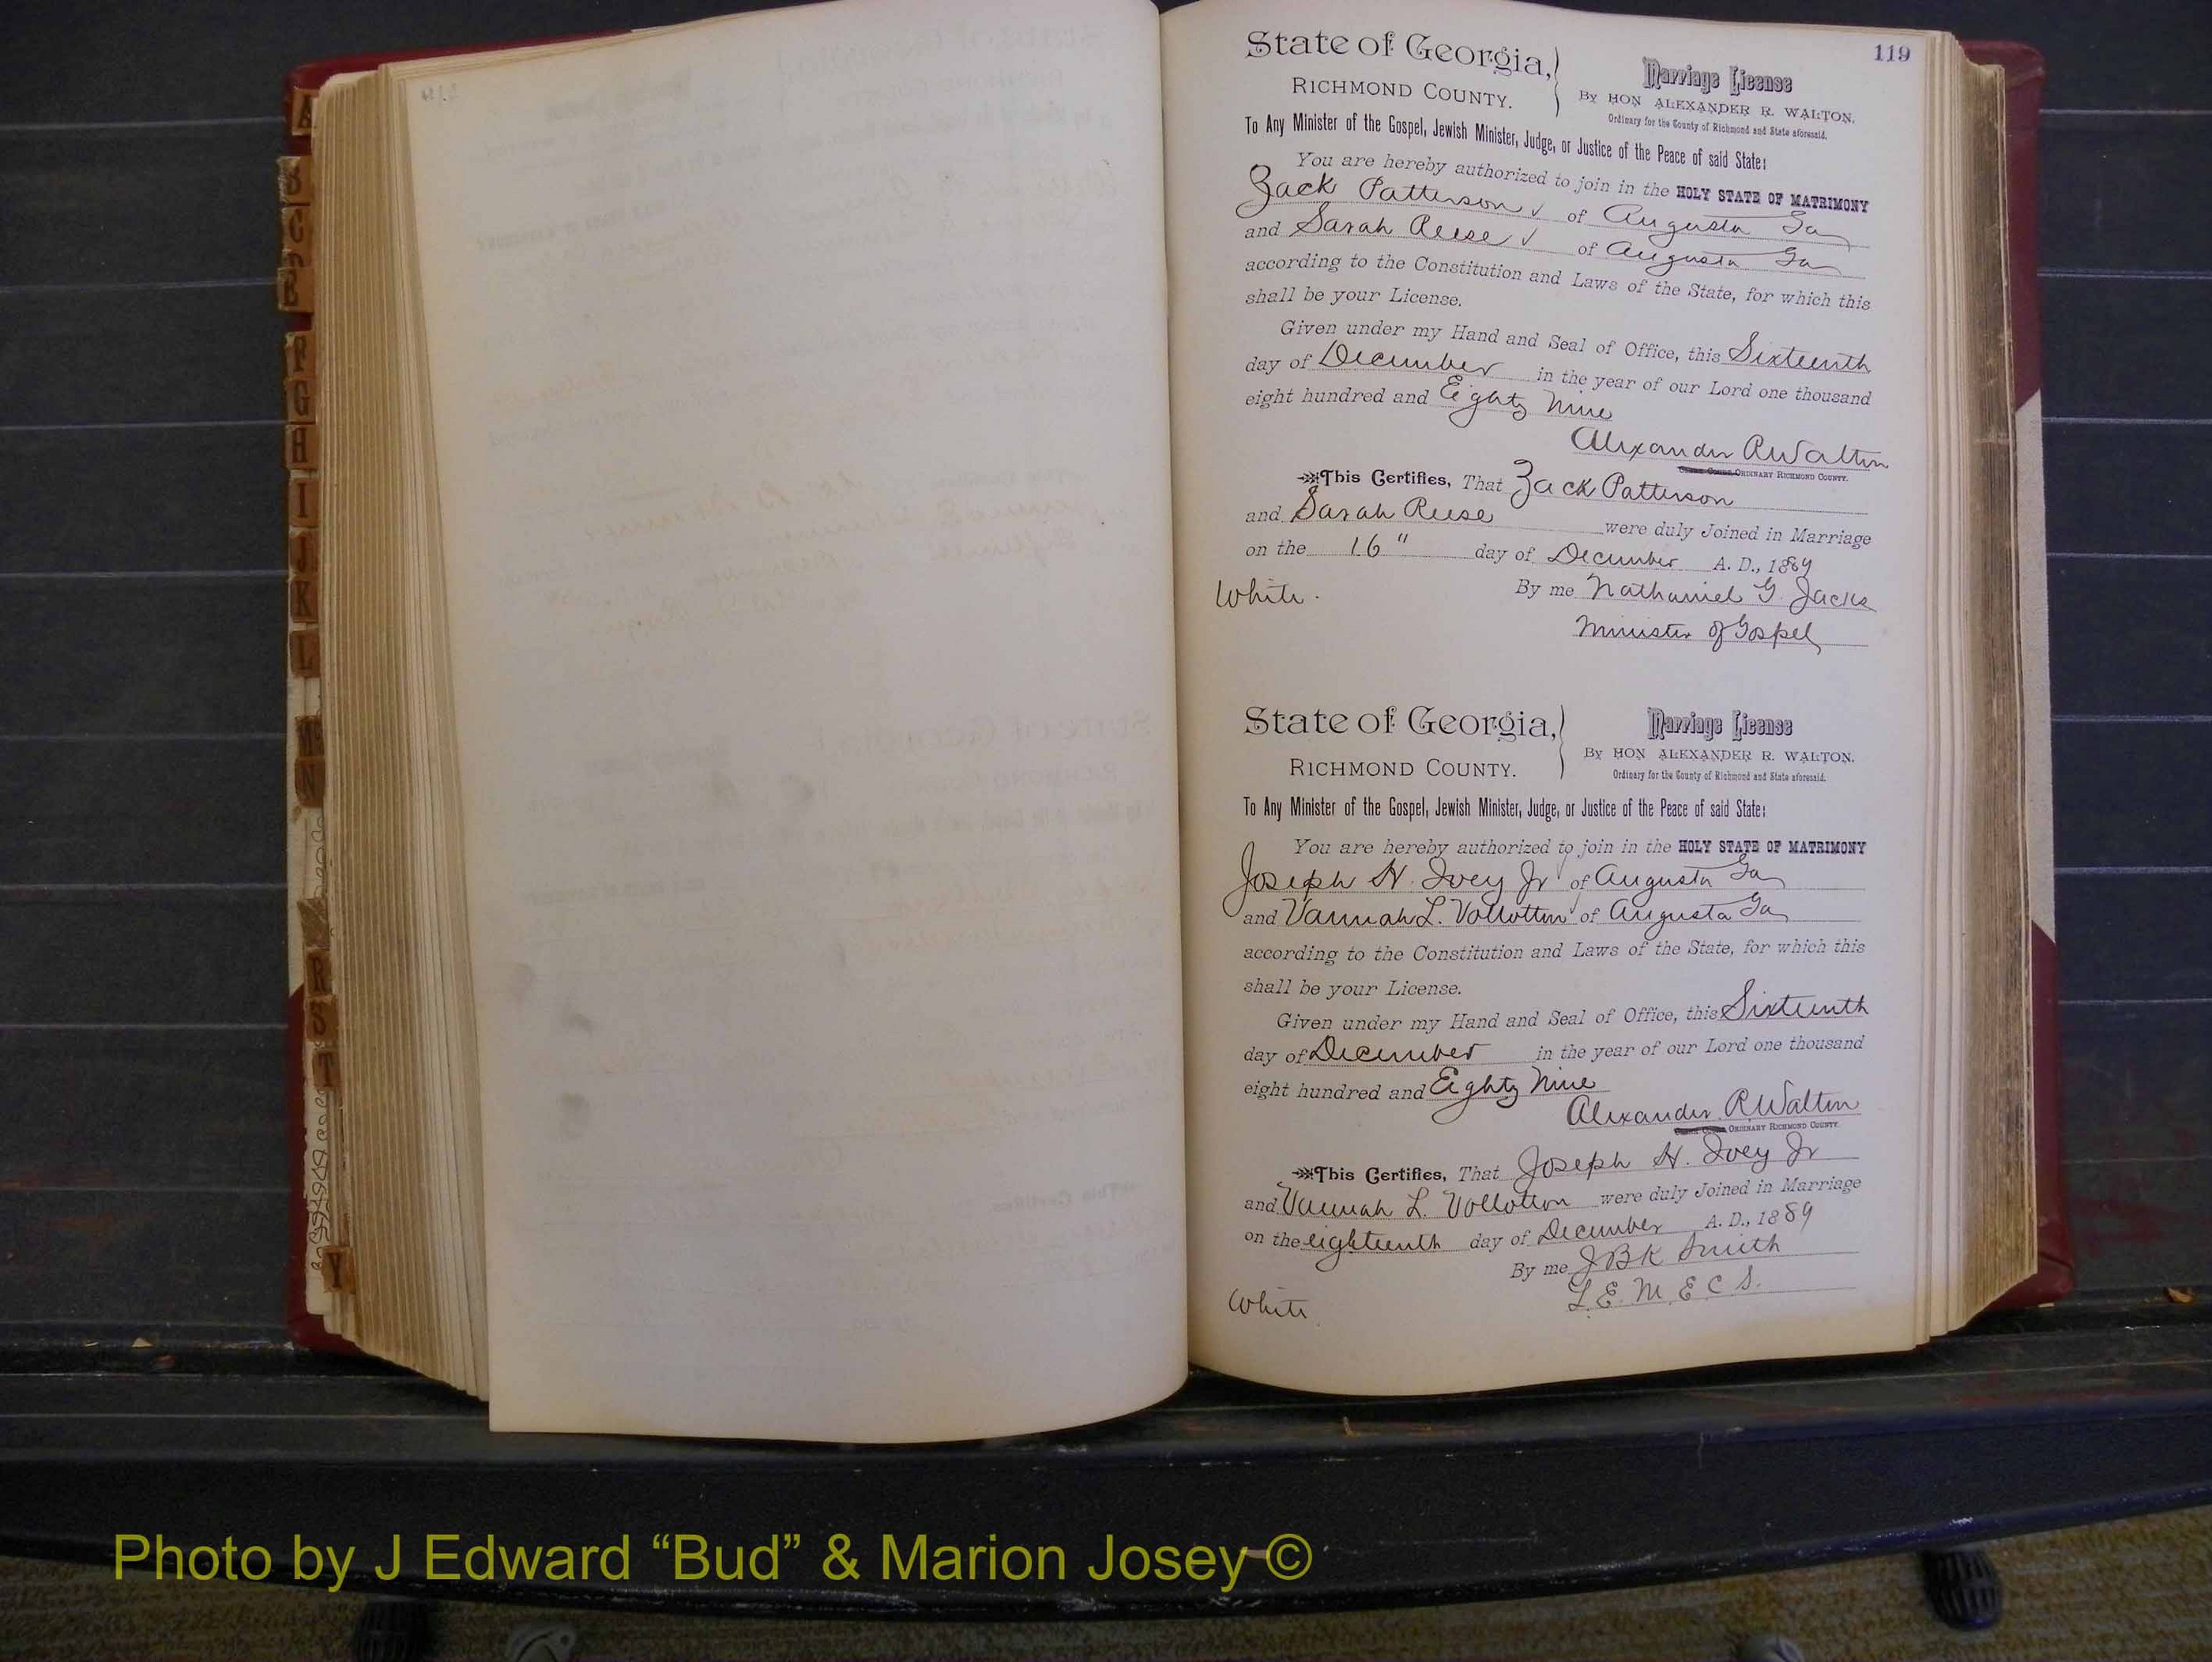 119
State of Georgia,
RICHMOND COUNTY.
Marriage License
By HON ALEXANDER R. WALTON,
Ordinary for the County of Richmond and State aforesaid.
To Any Minister of the Gospel, Jewish Minister, Judge, or Justice of the Peace of said State:
You are hereby authorized to join in the HOLY STATE OF MATRIMONY
Zack Patterson ✓ of Augusta Ga
and Sarah Reese ✓ of Augusta Ga
according to the Constitution and Laws of the State, for which this
shall be your License.
Given under my Hand and Seal of Office, this Sixteenth
day of December in the year of our Lord one thousand
eight hundred and Eighty Nine
Alexander R Walton
ORDINARY RICHMOND COUNTY.
This Certifies, That Zack Patterson
and Sarah Reese were duly Joined in Marriage
on the 16" day of December A. D., 1889
White. By me Nathaniel G. Jacks
Minister of Gospel
State of Georgia,
RICHMOND COUNTY.
Marriage License
By HON ALEXANDER R. WALTON.
Ordinary for the County of Richmond and State aforesaid.
To Any Minister of the Gospel, Jewish Minister, Judge, or Justice of the Peace of said State:
You are hereby authorized to join in the HOLY STATE OF MATRIMONY
Joseph H. Ivey Jr ✓ of Augusta Ga
and Vannah L. Vollotton ✓ of Augusta Ga
according to the Constitution and Laws of the State, for which this
shall be your License.
Given under my Hand and Seal of Office, this Sixteenth
day of December in the year of our Lord one thousand
eight hundred and Eighty Nine
Alexander R Walton
ORDINARY RICHMOND COUNTY.
This Certifies, That Joseph H. Ivey Jr
and Vannah L. Vollotton were duly Joined in Marriage
on the eighteenth day of December A. D., 1889
By me J B K Smith
L. E. M. E C S.
White
A
B
C
E
F
G
H
I
J
K
L
Mc
N
R
S
T
Y
Photo by J Edward “Bud” & Marion Josey ©